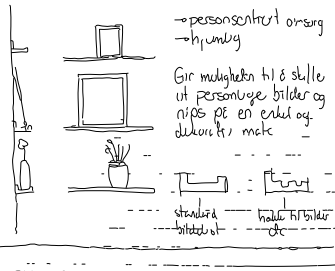 → personsentrert omsorg
→ hjemlig
Gir muligheten til å stille
ut personlige bilder og
nips på en enkel og
dekorativ måte
standard
hakk til bilder
etc